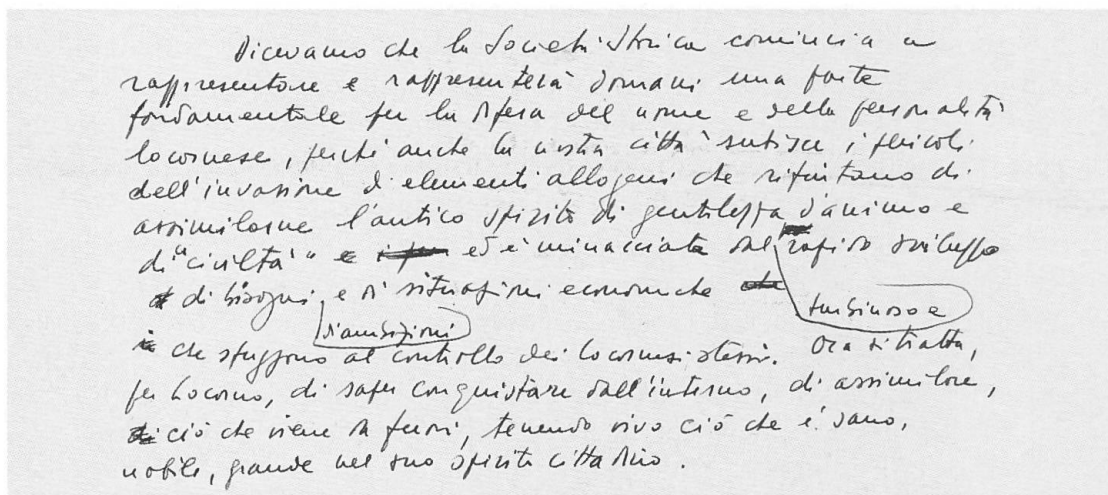 Dicevamo che la Società Storica comincia a
rappresentare e rappresenterà domani una forte
fondamentale per la difesa del nome e della personalità
locarnese, perché anche la nostra città subisce i pericoli
dell'invasione di elementi allogeni che rifiutano di
assimilarne l'antico spirito di gentilezza d'animo e
di "civiltà" ed è minacciata dal rapido sviluppo
di bisogni, e di situazioni economiche
turbinoso e
d'ambizioni
che sfuggono al controllo dei locarnesi stessi. Ora si tratta,
per Locarno, di saper conquistare dall'interno, di assimilare,
ciò che viene da fuori, tenendo vivo ciò che è sano,
nobile, grande nel suo spirito cittadino.